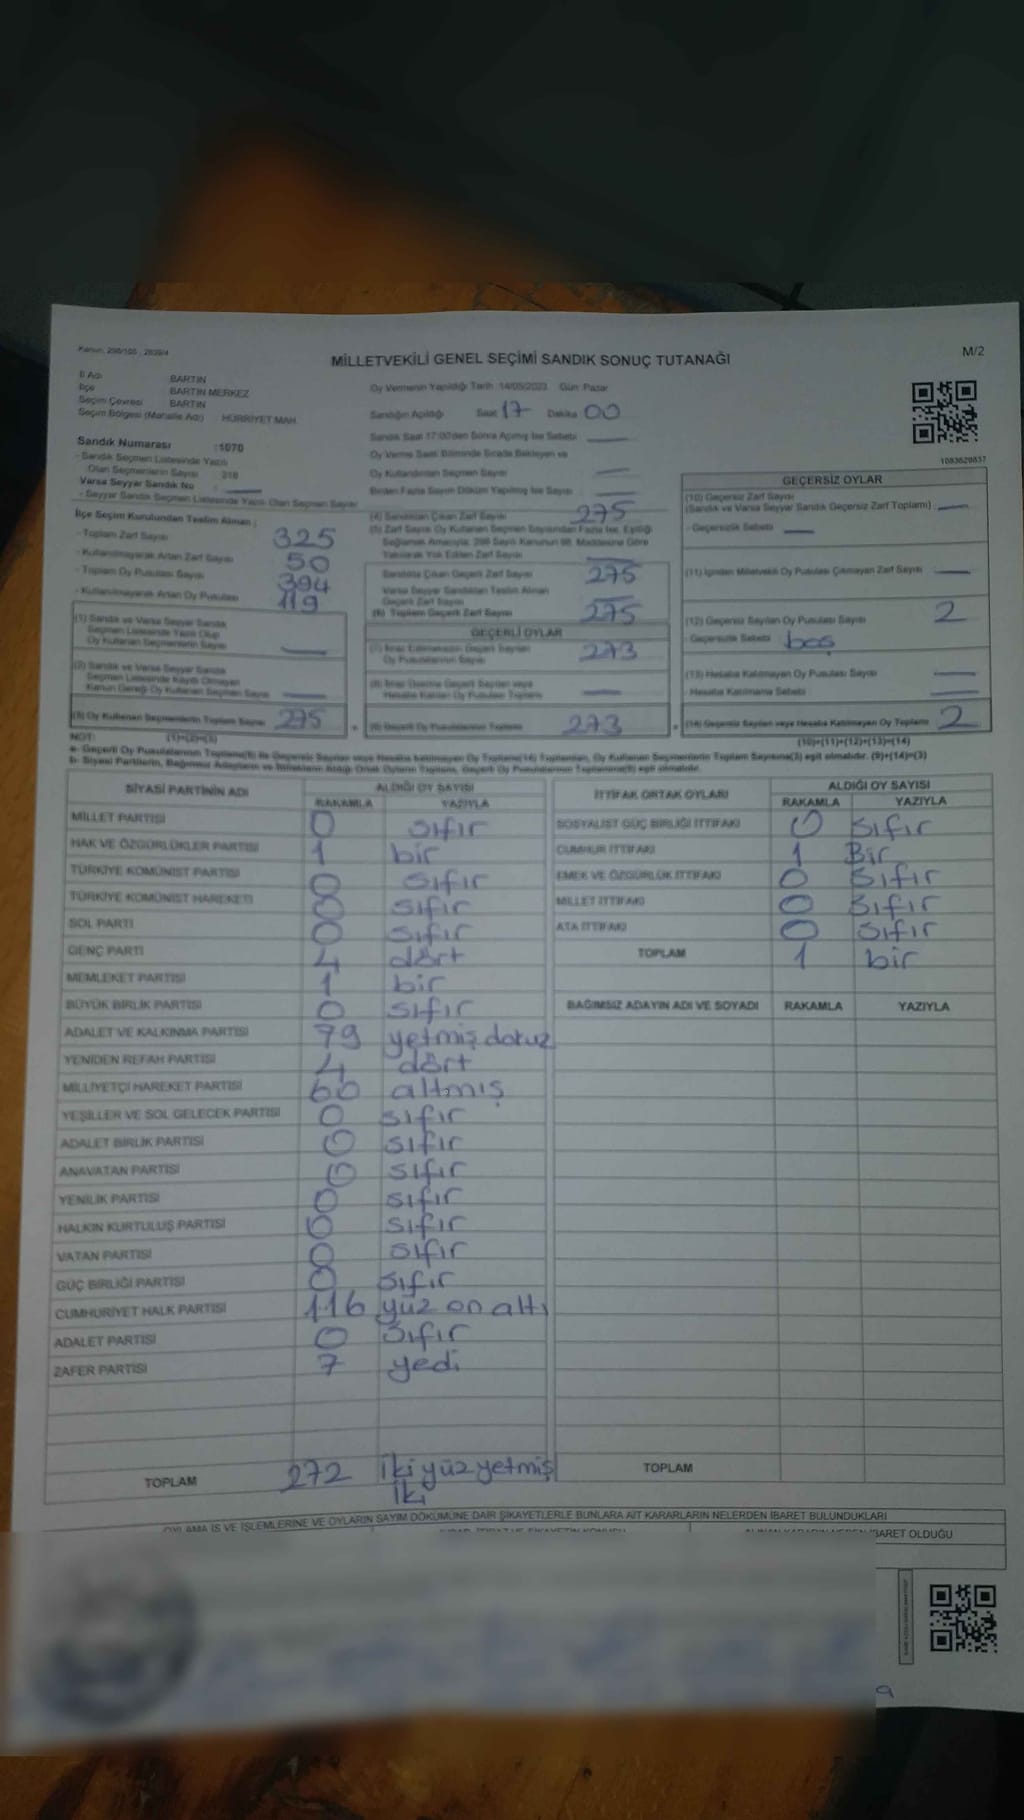 Kanun: 298/105 , 2839/4
MİLLETVEKİLİ GENEL SEÇİMİ SANDIK SONUÇ TUTANAĞI
M/2
İl Adı BARTIN
İlçe BARTIN MERKEZ
Seçim Çevresi BARTIN
Seçim Bölgesi (Mahalle Adı) HÜRRİYET MAH.
Sandık Numarası :1070
- Sandık Seçmen Listesinde Yazılı
Olan Seçmenlerin Sayısı : 316
Varsa Seyyar Sandık No
- Seyyar Sandık Seçmen Listesinde Yazılı Olan Seçmen Sayısı
İlçe Seçim Kurulundan Teslim Alınan ;
- Toplam Zarf Sayısı 325
- Kullanılmayarak Artan Zarf Sayısı 50
- Toplam Oy Pusulası Sayısı 394
- Kullanılmayarak Artan Oy Pusulası 119
(1) Sandık ve Varsa Seyyar Sandık
Seçmen Listesinde Yazılı Olup
Oy Kullanan Seçmenlerin Sayısı
(2) Sandık ve Varsa Seyyar Sandık
Seçmen Listesinde Kayıtlı Olmayan
Kanun Gereği Oy Kullanan Seçmen Sayısı
(3) Oy Kullanan Seçmenlerin Toplam Sayısı 275
(1)+(2)=(3)
Oy Vermenin Yapıldığı Tarih :14/05/2023 Gün: Pazar
Sandığın Açıldığı Saat 17 Dakika 00
Sandık Saat 17:00'den Sonra Açılmış İse Sebebi
Oy Verme Saati Bitiminde Sırada Bekleyen ve
Oy Kullandırılan Seçmen Sayısı
Birden Fazla Sayım Döküm Yapılmış İse Sayısı
(4) Sandıktan Çıkan Zarf Sayısı 275
(5) Zarf Sayısı Oy Kullanan Seçmen Sayısından Fazla İse, Eşitliği
Sağlamak Amacıyla, 298 Sayılı Kanunun 98. Maddesine Göre
Yakılarak Yok Edilen Zarf Sayısı
Sandıkta Çıkan Geçerli Zarf Sayısı 275
Varsa Seyyar Sandıktan Teslim Alınan
Geçerli Zarf Sayısı
(6) Toplam Geçerli Zarf Sayısı 275
GEÇERLİ OYLAR
(7) İtiraz Edilmeksizin Geçerli Sayılan
Oy Pusulalarının Sayısı 273
(8) İtiraz Üzerine Geçerli Sayılan veya
Hesaba Katılan Oy Pusulası Toplamı
(9) Geçerli Oy Pusulalarının Toplamı 273
1083629837
GEÇERSİZ OYLAR
(10) Geçersiz Zarf Sayısı
(Sandık ve Varsa Seyyar Sandık Geçersiz Zarf Toplamı)
- Geçersizlik Sebebi
(11) İçinden Milletvekili Oy Pusulası Çıkmayan Zarf Sayısı
(12) Geçersiz Sayılan Oy Pusulası Sayısı 2
- Geçersizlik Sebebi boş
(13) Hesaba Katılmayan Oy Pusulası Sayısı
- Hesaba Katılmama Sebebi
(14) Geçersiz Sayılan veya Hesaba Katılmayan Oy Toplamı 2
(10)+(11)+(12)+(13)=(14)
NOT:
a- Geçerli Oy Pusulalarının Toplamı(9) ile Geçersiz Sayılan veya Hesaba Katılmayan Oy Toplamı(14) Toplamları, Oy Kullanan Seçmenlerin Toplam Sayısına(3) eşit olmalıdır. (9)+(14)=(3)
b- Siyasi Partilerin, Bağımsız Adayların ve İttifakların Aldığı Ortak Oyların Toplamı, Geçerli Oy Pusulalarının Toplamına(9) eşit olmalıdır.
SİYASİ PARTİNİN ADI ALDIĞI OY SAYISI
RAKAMLA YAZIYLA
MİLLET PARTİSİ 0 sıfır
HAK VE ÖZGÜRLÜKLER PARTİSİ 1 bir
TÜRKİYE KOMÜNİST PARTİSİ 0 sıfır
TÜRKİYE KOMÜNİST HAREKETİ 0 sıfır
SOL PARTİ 0 sıfır
GENÇ PARTİ 4 dört
MEMLEKET PARTİSİ 1 bir
BÜYÜK BİRLİK PARTİSİ 0 sıfır
ADALET VE KALKINMA PARTİSİ 79 yetmiş dokuz
YENİDEN REFAH PARTİSİ 4 dört
MİLLİYETÇİ HAREKET PARTİSİ 60 altmış
YEŞİLLER VE SOL GELECEK PARTİSİ 0 sıfır
ADALET BİRLİK PARTİSİ 0 sıfır
ANAVATAN PARTİSİ 0 sıfır
YENİLİK PARTİSİ 0 sıfır
HALKIN KURTULUŞ PARTİSİ 0 sıfır
VATAN PARTİSİ 0 sıfır
GÜÇ BİRLİĞİ PARTİSİ 0 sıfır
CUMHURİYET HALK PARTİSİ 116 yüz on altı
ADALET PARTİSİ 0 sıfır
ZAFER PARTİSİ 7 yedi
TOPLAM 272 iki yüz yetmiş
iki
İTTİFAK ORTAK OYLARI ALDIĞI OY SAYISI
RAKAMLA YAZIYLA
SOSYALİST GÜÇ BİRLİĞİ İTTİFAKI 0 sıfır
CUMHUR İTTİFAKI 1 Bir
EMEK VE ÖZGÜRLÜK İTTİFAKI 0 sıfır
MİLLET İTTİFAKI 0 sıfır
ATA İTTİFAKI 0 sıfır
TOPLAM 1 bir
BAĞIMSIZ ADAYIN ADI VE SOYADI RAKAMLA YAZIYLA
TOPLAM
OYLAMA İŞ VE İŞLEMLERİNE VE OYLARIN SAYIM DÖKÜMÜNE DAİR ŞİKAYETLERLE BUNLARA AİT KARARLARIN NELERDEN İBARET BULUNDUKLARI